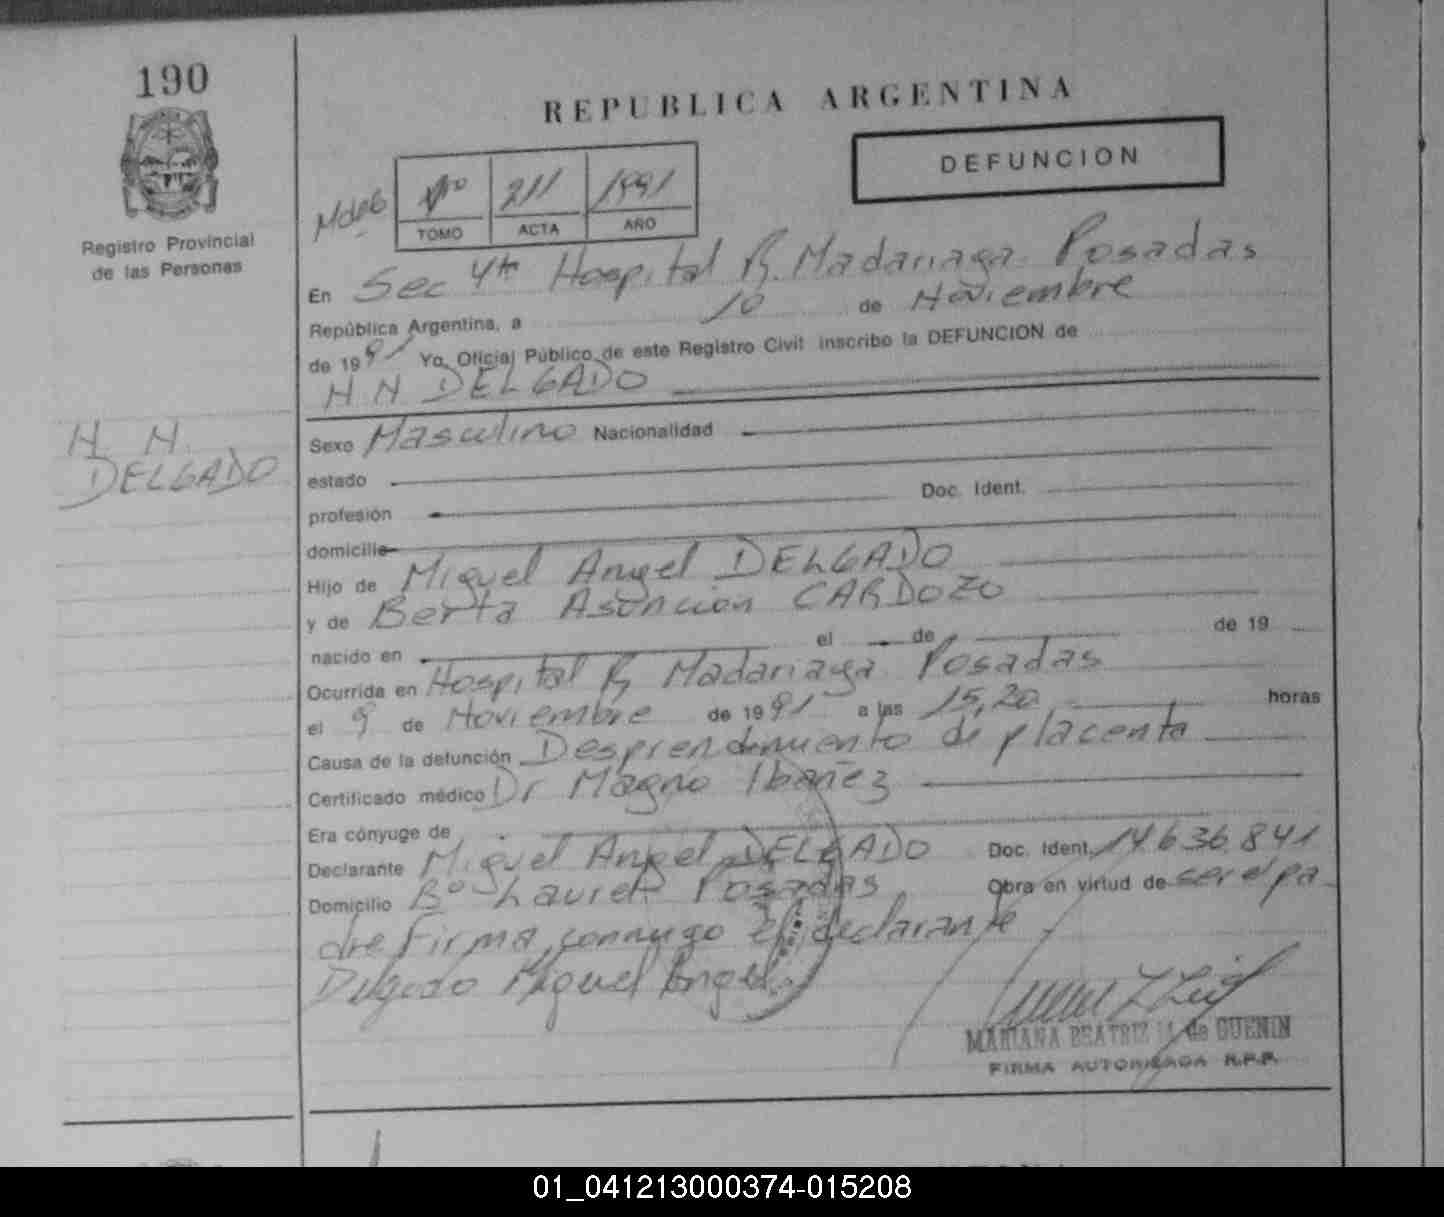 190
REPUBLICA ARGENTINA
DEFUNCION
Nº 211 1991
TOMO ACTA AÑO
Registro Provincial
de las Personas
En Sec 4ta Hospital R. Madariaga Posadas
República Argentina, a 10 de Noviembre
de 1991 Yo, Oficial Público de este Registro Civil inscribo la DEFUNCION de
N.N DELGADO
N. N.
DELGADO
Sexo Masculino Nacionalidad
estado
profesión Doc. Ident.
domicilio
Hijo de Miguel Angel DELGADO
y de Berta Asuncion CARDOZO
nacido en el de de 19
Ocurrida en Hospital R Madariaga Posadas
el 9 de Noviembre de 1991 a las 15,20 horas
Causa de la defunción Desprendimiento de placenta
Certificado médico Dr Magno Ibañez
Era cónyuge de
Declarante Miguel Angel DELGADO Doc. Ident. 14.636.841
Domicilio Bº Laurel Posadas Obra en virtud de ser el pa
dre firma conmigo el declarante
Delgado Miguel Angel
MARIANA BEATRIZ de GUENIN
FIRMA AUTORIZADA R.P.P.
01_041213000374-015208